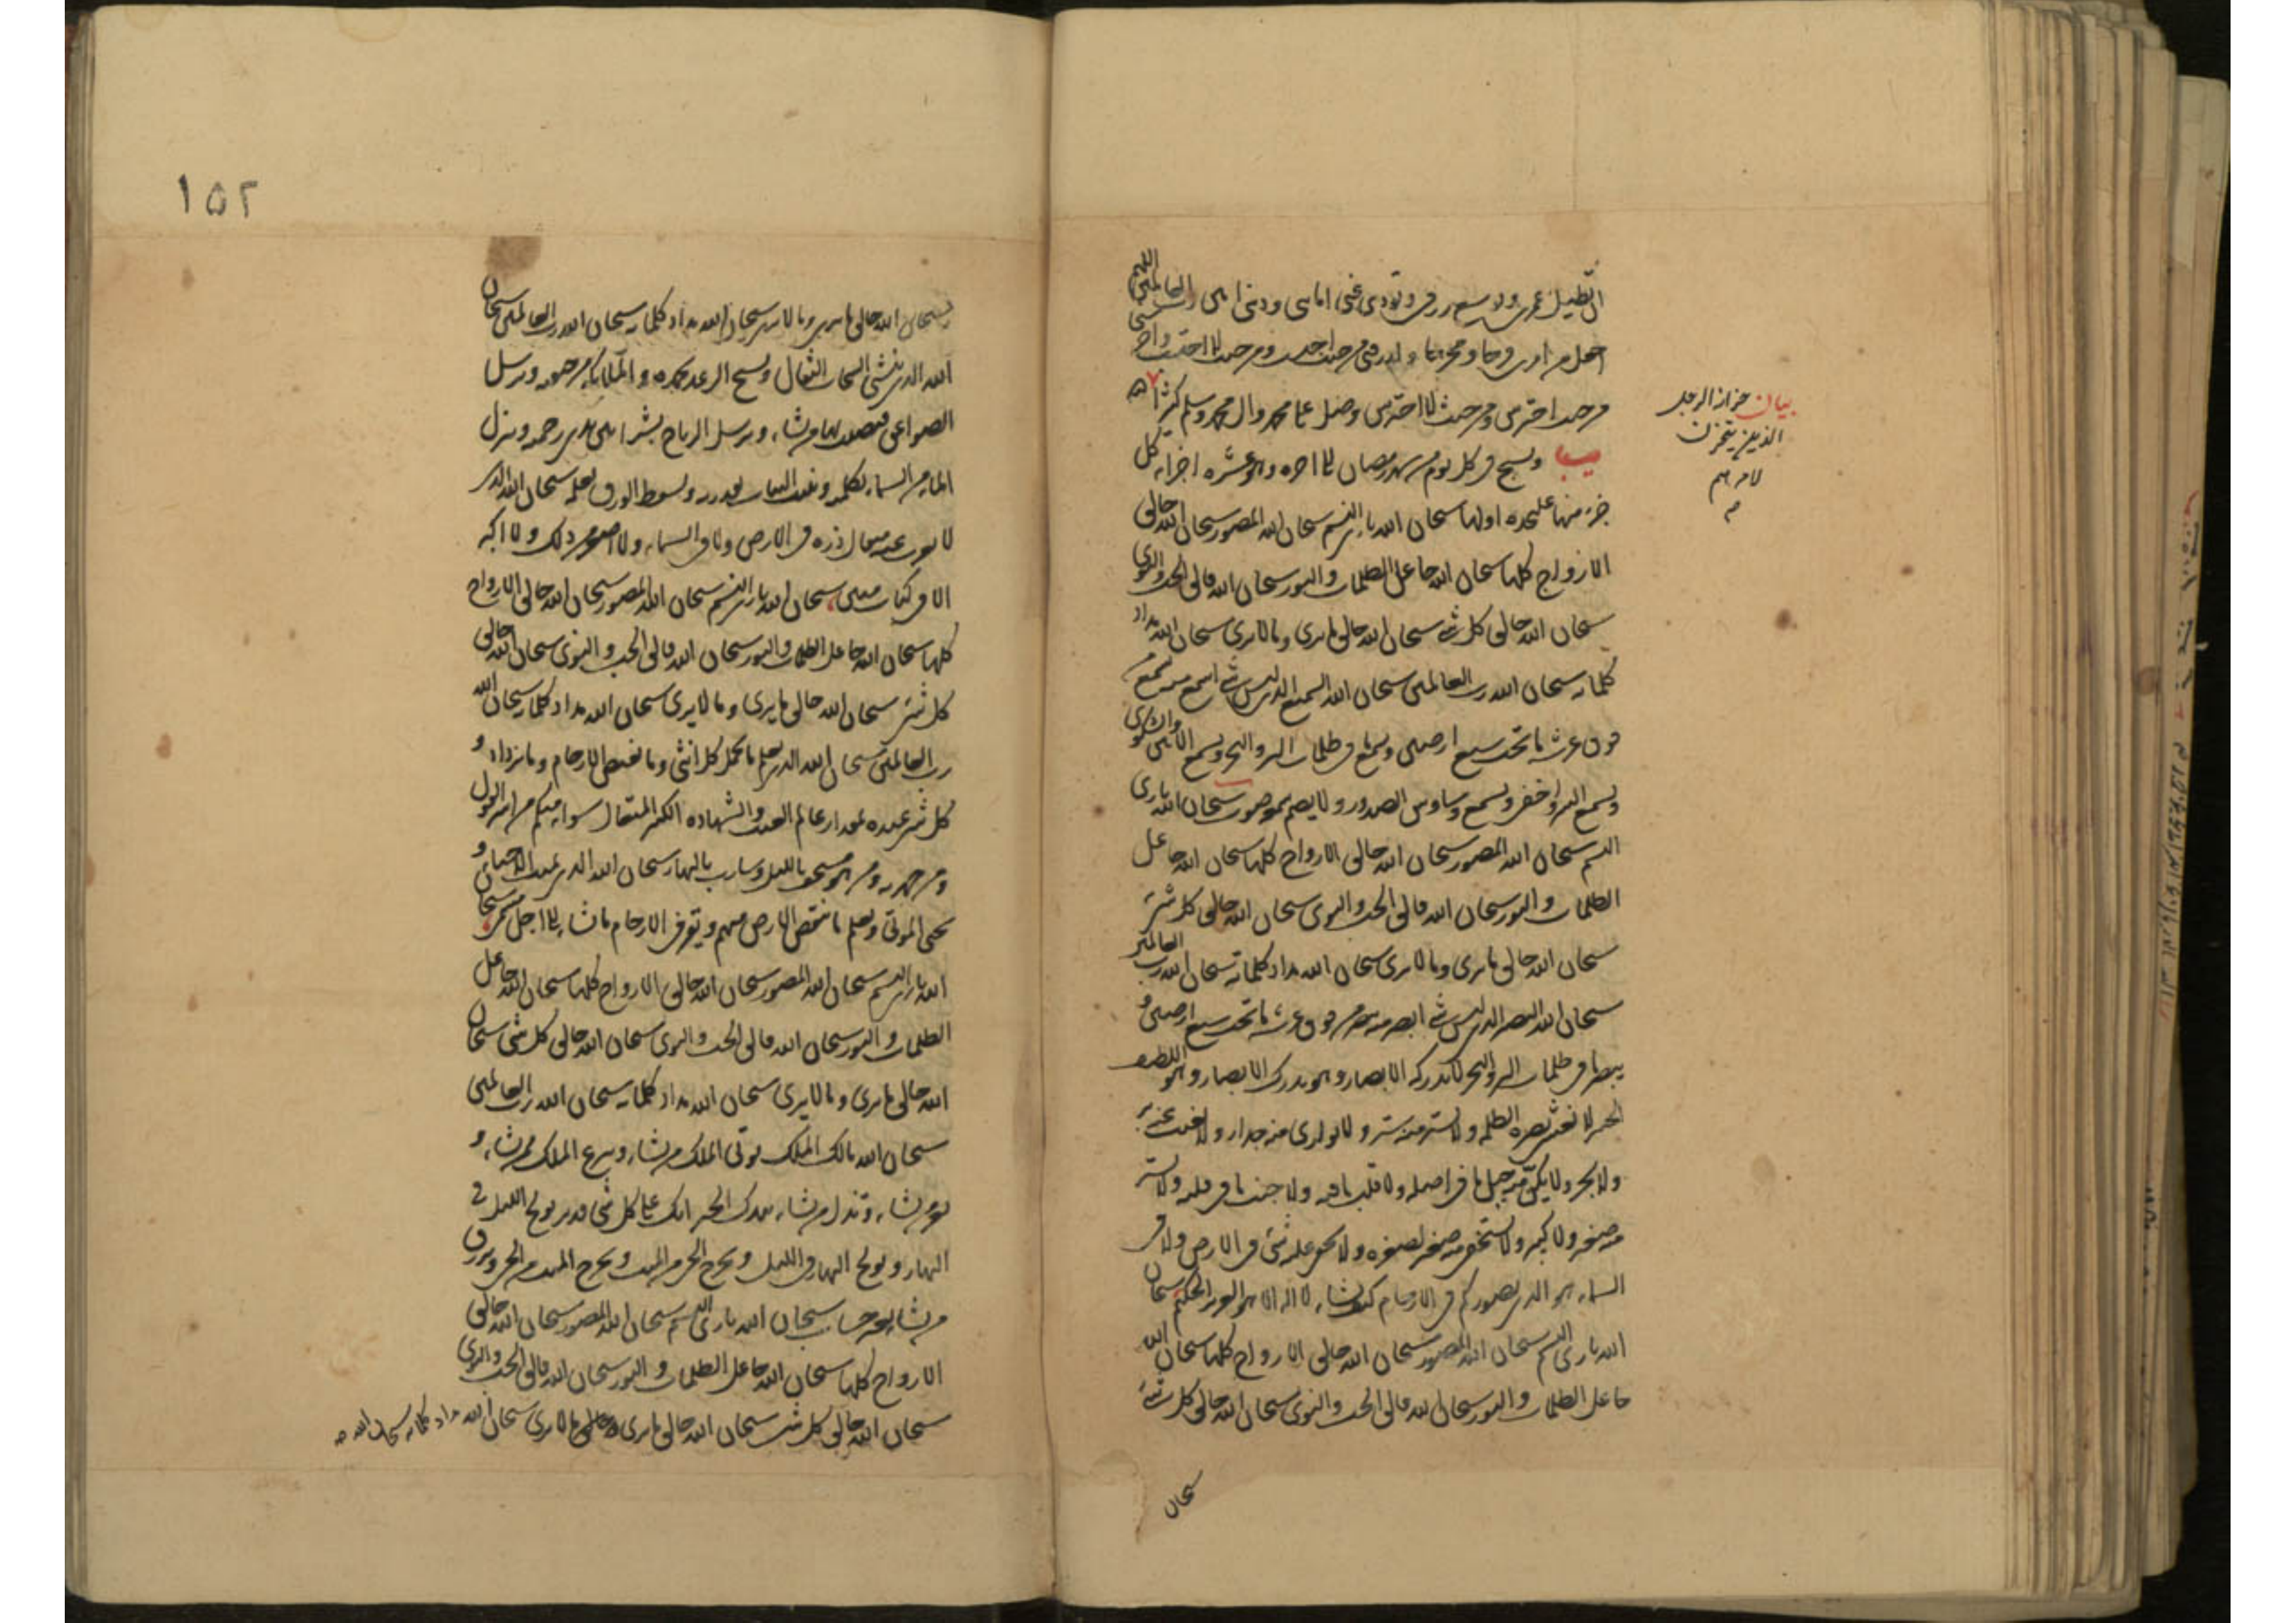 ان تطيل عمرى وتوسع رزقى وتؤدى عنى امانتى ودينى امين رب العالمين اللهم
اجعل من امرى فرجا ومخرجا وارزقنى من حيث احتسب ومن حيث لا احتسب واحرسنى
من حيث احترس ومن حيث لا احترس وصل على محمد وال محمد وسلم كثيرا
ويسبح فى كل يوم من شهر رمضان الى اخره وهو عشره اجزاء كل
جزء منها على حده اولها سبحان الله بارئ النسم سبحان الله المصور سبحان الله خالق
الازواج كلها سبحان الله جاعل الظلمات والنور سبحان الله فالق الحب والنوى
سبحان الله خالق كل شئ سبحان الله خالق ما يرى وما لا يرى سبحان الله مداد
كلماته سبحان الله رب العالمين سبحان الله السميع الذى ليس شئ اسمع منه يسمع من
فوق عرشه ما تحت سبع ارضين ويسمع ما فى ظلمات البر والبحر ويسمع الانين والشكوى
ويسمع السر واخفى ويسمع وساوس الصدور ولا يصم سمعه صوت سبحان الله بارئ
النسم سبحان الله المصور سبحان الله خالق الازواج كلها سبحان الله جاعل
الظلمات والنور سبحان الله فالق الحب والنوى سبحان الله خالق كل شئ
سبحان الله خالق ما يرى وما لا يرى سبحان الله مداد كلماته سبحان الله رب العالمين
سبحان الله البصير الذى ليس شئ ابصر منه يبصر من فوق عرشه ما تحت سبع ارضين و
يبصر ما فى ظلمات البر والبحر لا تدركه الابصار وهو يدرك الابصار وهو اللطيف
الخبير لا تغشى بصره الظلمه ولا يستر منه ستر ولا يوارى منه جدار ولا يغيب عنه بر
ولا بحر ولا يكن منه جبل ما فى اصله ولا قلب ما فيه ولا جنب ما فى قلبه ولا يستتر
منه صغير ولا كبير ولا يستخفى منه صغير لصغره ولا يخفى عليه شئ فى الارض ولا فى
السماء هو الذى يصوركم فى الارحام كيف يشاء لا اله الا هو العزيز الحكيم سبحان
الله بارئ النسم سبحان الله المصور سبحان الله خالق الازواج كلها سبحان الله
جاعل الظلمات والنور سبحان الله فالق الحب والنوى سبحان الله خالق كل شئ
سبحان
بيان حزانه الرجل
الذين يتحزن
لامرهم
١٥٢
سبحان الله خالق ما يرى وما لا يرى سبحان الله مداد كلماته سبحان الله رب العالمين سبحان
الله الذى ينشئ السحاب الثقال ويسبح الرعد بحمده والملائكه من خيفته ويرسل
الصواعق فيصيب بها من يشاء ويرسل الرياح بشرا بين يدى رحمته وينزل
الماء من السماء بكلمته وينبت النبات بقدرته ويسقط الورق بعلمه سبحان الله الذى
لا يعزب عنه مثقال ذره فى الارض ولا فى السماء ولا اصغر من ذلك ولا اكبر
الا فى كتاب مبين سبحان الله بارئ النسم سبحان الله المصور سبحان الله خالق الازواج
كلها سبحان الله جاعل الظلمات والنور سبحان الله فالق الحب والنوى سبحان الله خالق
كل شئ سبحان الله خالق ما يرى وما لا يرى سبحان الله مداد كلماته سبحان الله
رب العالمين سبحان الله الذى يعلم ما تحمل كل انثى وما تغيض الارحام وما تزداد و
كل شئ عنده بمقدار عالم الغيب والشهاده الكبير المتعال سواء منكم من اسر القول
ومن جهر به ومن هو مستخف بالليل وسارب بالنهار سبحان الله الذى يميت الاحياء و
يحيى الموتى ويعلم ما تنقص الارض منهم ويقر فى الارحام ما يشاء الى اجل مسمى سبحان
الله بارئ النسم سبحان الله المصور سبحان الله خالق الازواج كلها سبحان الله جاعل
الظلمات والنور سبحان الله فالق الحب والنوى سبحان الله خالق كل شئ سبحان
الله خالق ما يرى وما لا يرى سبحان الله مداد كلماته سبحان الله رب العالمين
سبحان الله مالك الملك يوتى الملك من يشاء وينزع الملك ممن يشاء و
يعز من يشاء وتذل من يشاء بيدك الخير انك على كل شئ قدير يولج الليل فى
النهار ويولج النهار فى الليل ويخرج الحى من الميت ويخرج الميت من الحى ويرزق
من يشاء بغير حساب سبحان الله بارئ النسم سبحان الله المصور سبحان الله خالق
الازواج كلها سبحان الله جاعل الظلمات والنور سبحان الله فالق الحب والنوى
سبحان الله خالق كل شئ سبحان الله خالق ما يرى وما لا يرى سبحان الله مداد كلماته سبحان الله